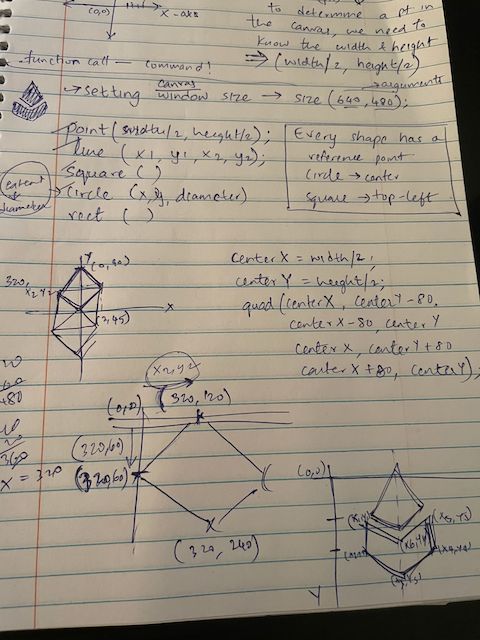 (0,0)
X-axis
to determine a pt in
the canvas, we need to
know the width & height
function call — command!
⇒ (width/2, height/2)
→ arguments
→ setting canvas
window size → size(640, 480);
point (width/2, height/2);
line (x1, y1, x2, y2);
Square ( )
extent
diameter
Circle (x, y, diameter)
rect ( )
Every shape has a
reference point
circle → center
square → top-left
Y
(0,90)
320,
X2, Y2
X
(3,45)
centerX = width/2;
centerY = height/2;
quad (centerX, centerY-80,
centerX-80, centerY
centerX, centerY+80
centerX+80, centerY);
480
360
X = 320
X2, Y2
(0,0)
(320, 120)
(320,60)
(320,60)
(320, 240)
(0,0)
(X5, Y5)
Y